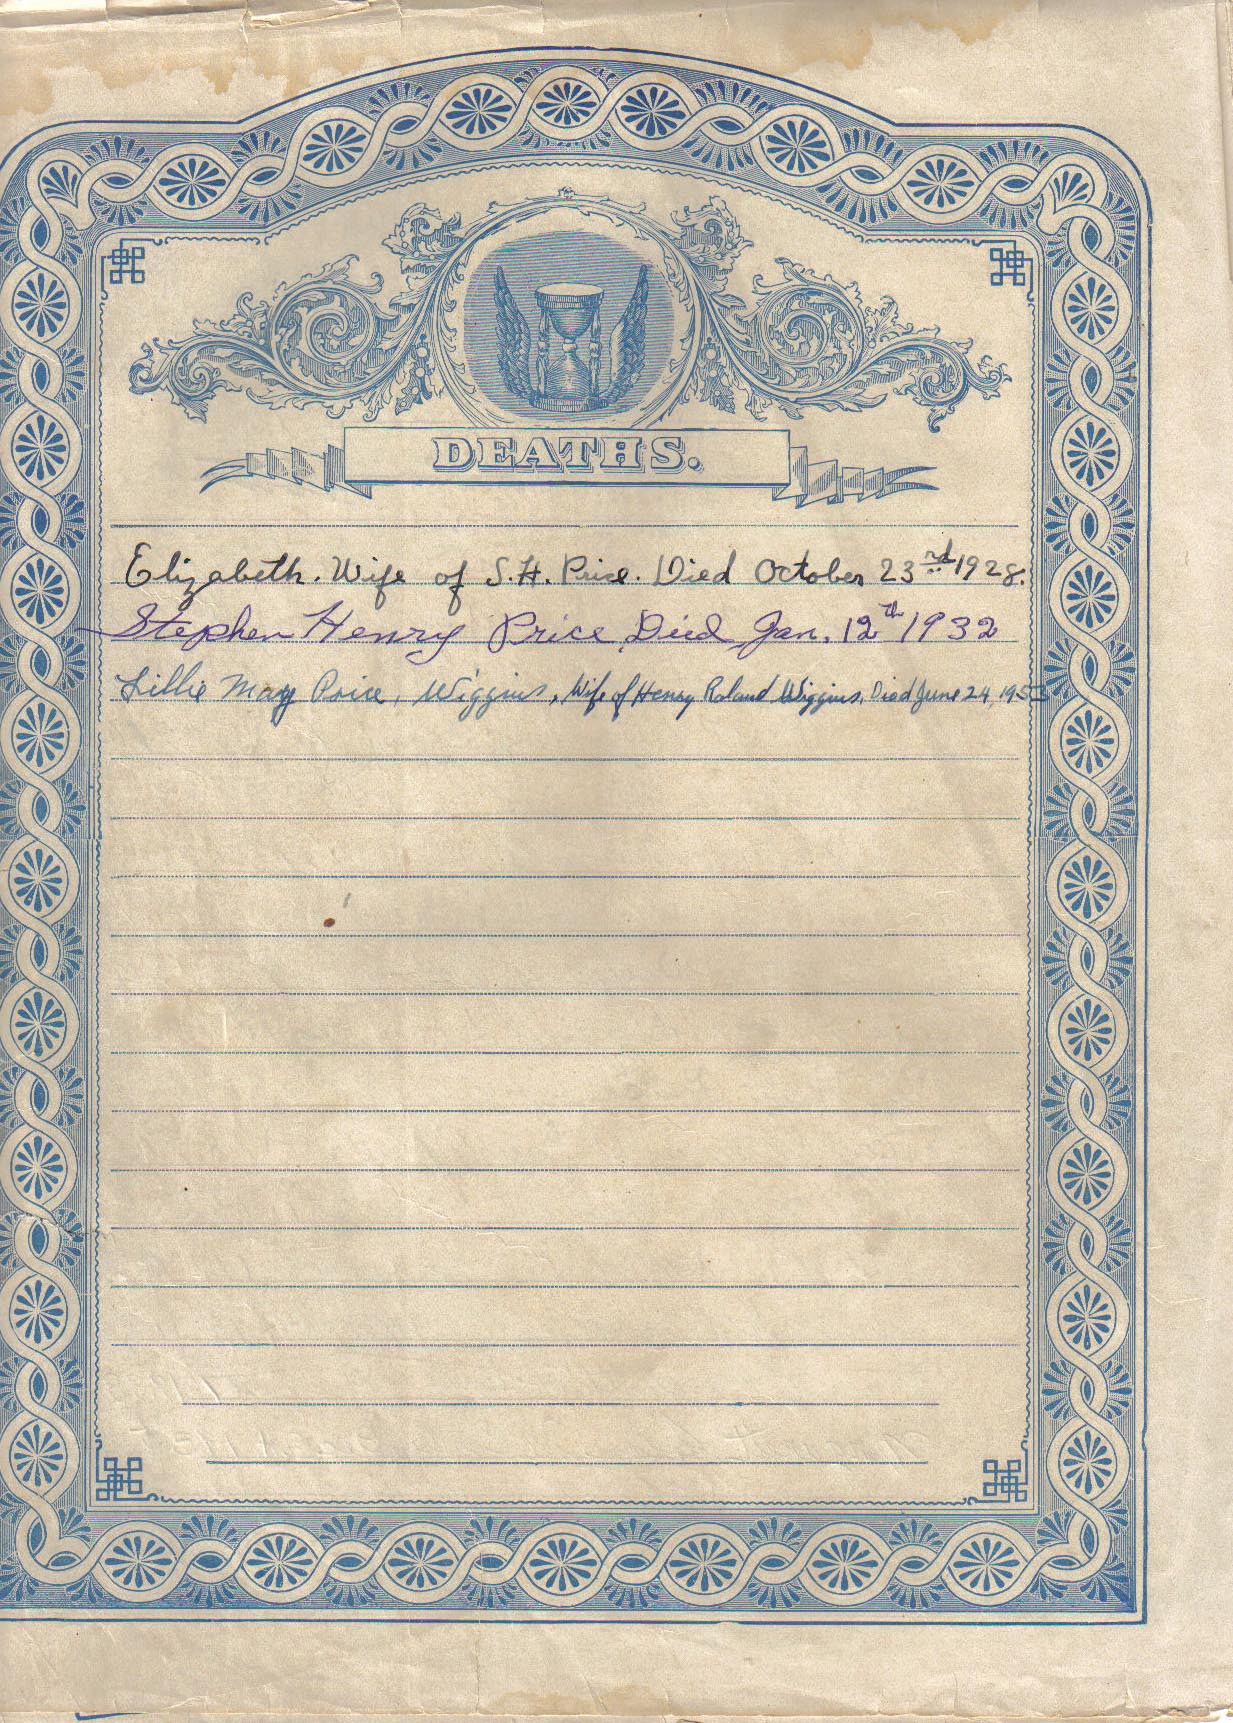 DEATHS.
Elizabeth. Wife of S. H. Price. Died October 23rd 1928.
Stephen Henry Price Died Jan. 12th 1932
Lillie May Price, Wiggins, Wife of Henry Roland Wiggins, Died June 24, 1953